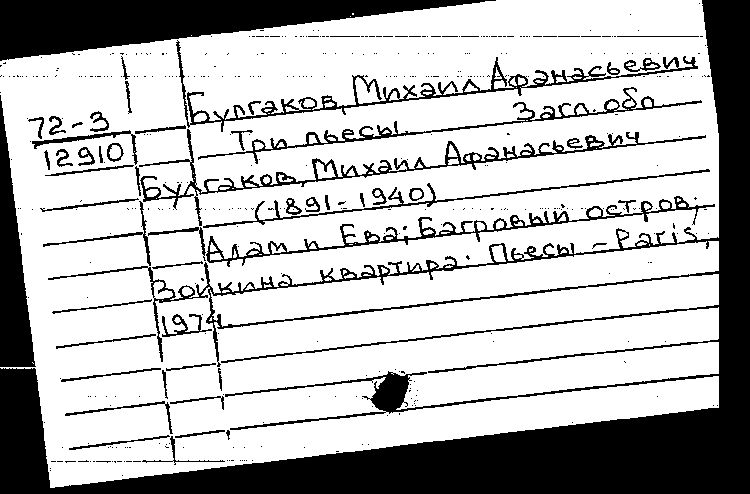 72-3
12910
Булгаков, Михаил Афанасьевич
Три пьесы. Загл. обл
Булгаков, Михаил Афанасьевич
(1891-1940)
Адам и Ева; Багровый остров;
Зойкина квартира: Пьесы - Paris,
1974.